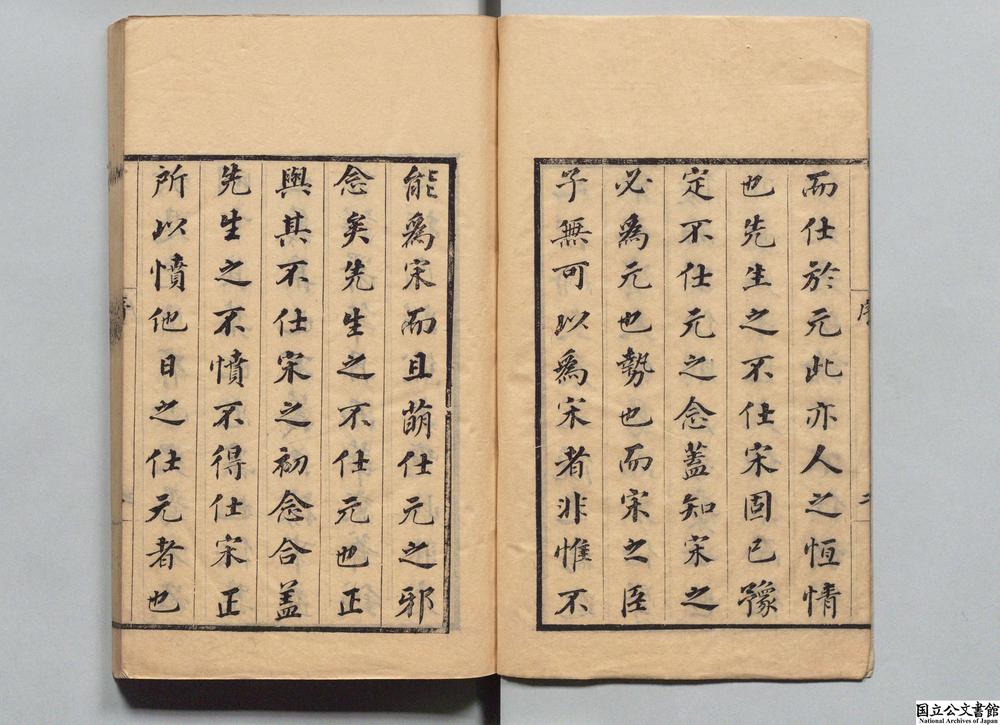 而仕於元此亦人之恒情
也先生之不仕宋固已豫
定不仕元之念蓋知宋之
必為元也勢也而宋之臣
子無可以為宋者非惟不
能為宋而且萌仕元之邪
念矣先生之不仕元也正
與其不仕宋之初念合蓋
先生之不憤不得仕宋正
所以憤他日之仕元者也
国立公文書館
National Archives of Japan